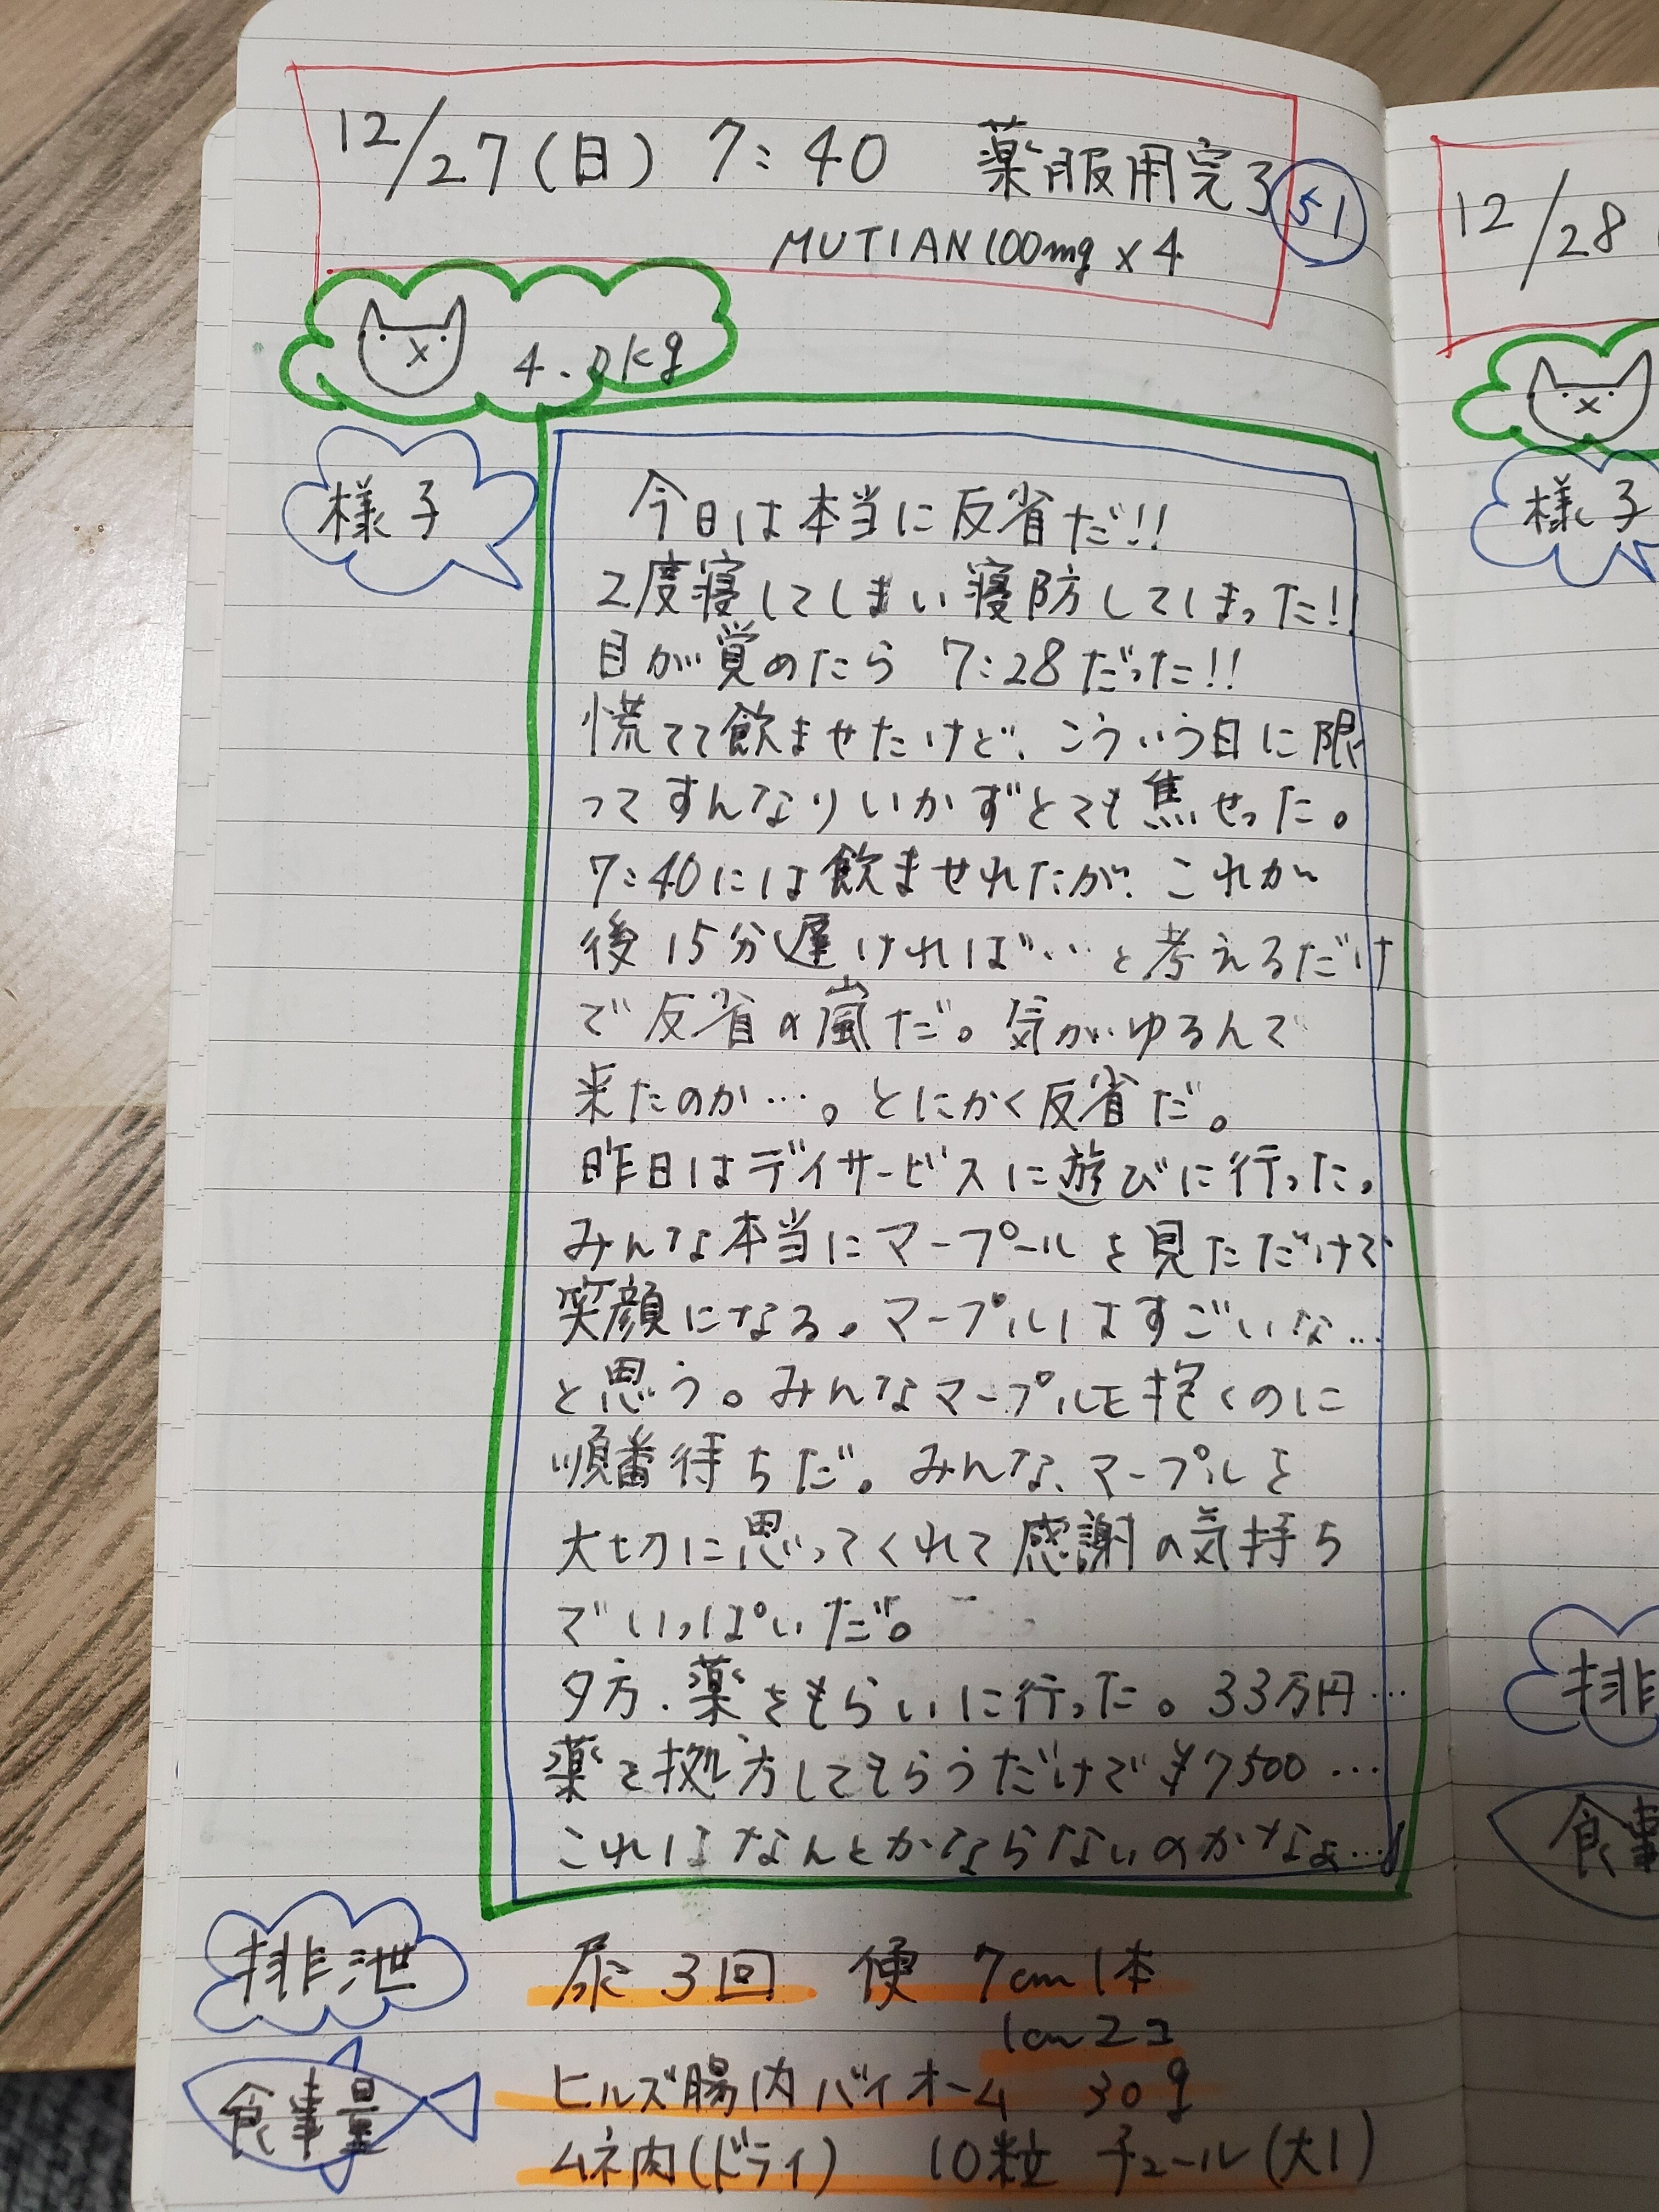 12/27(日) 7:40 薬服用完了
51
MUTIAN100mg×4
4.0kg
様子
今日は本当に反省だ!!
2度寝してしまい寝防してしまった!
目が覚めたら 7:28だった!!
慌てて飲ませたけど、こういう日に限
ってすんなりいかずとても焦せった。
7:40には飲ませれたが、これが
後15分遅ければ…と考えるだけ
で反省の嵐だ。気がゆるんで
来たのか…。とにかく反省だ。
昨日はデイサービスに遊びに行った。
みんな本当にマープールを見ただけで
笑顔になる。マープルはすごいな…
と思う。みんなマープルを抱くのに
順番待ちだ。みんな、マープルを
大切に思ってくれて感謝の気持ち
でいっぱいだ。
夕方、薬をもらいに行った。33万円…
薬を処方してもらうだけで¥7500…
これはなんとかならないのかなぁ…
排泄
尿 3回 便 7cm1本
1cm2コ
食事量
ヒルズ腸内バイオーム 30g
ムネ肉(ドライ) 10粒 チュール(大1)
12/28
様子
排
食事